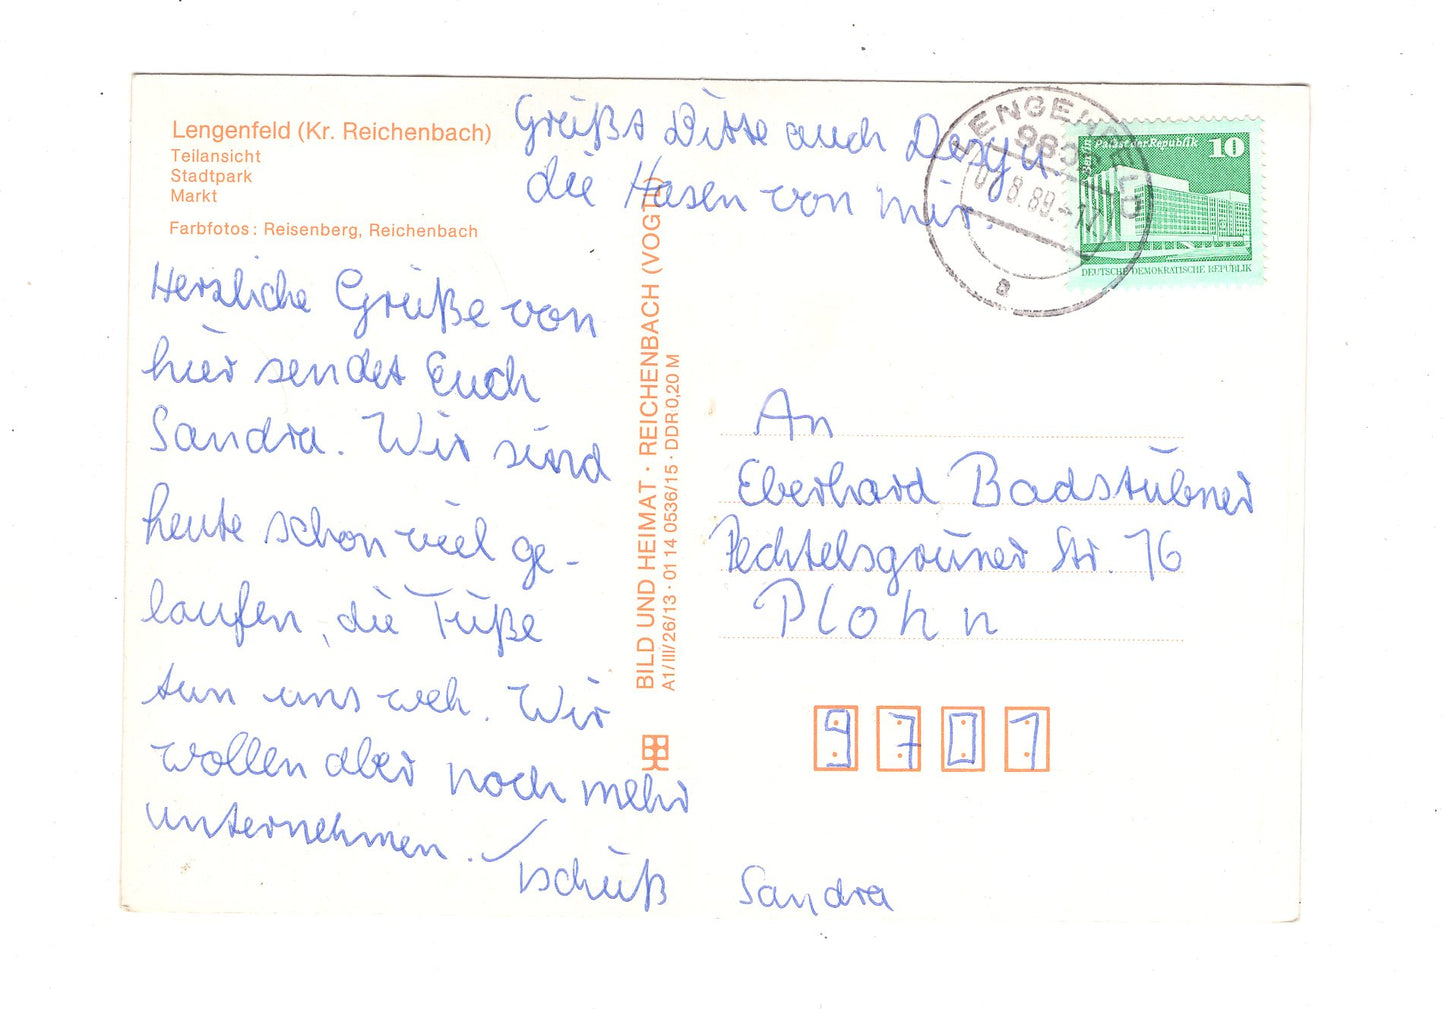 Lengenfeld (Kr. Reichenbach)
Teilansicht
Stadtpark
Markt
Farbfotos: Reisenberg, Reichenbach
Grüßt Bitte auch Dexy u.
die Hasen von mir.
Herzliche Grüße von
hier sendet Euch
Sandra. Wir sind
heute schon viel ge-
laufen, die Füße
tun uns weh. Wir
wollen aber noch mehr
unternehmen.
Tschüß Sandra
BILD UND HEIMAT · REICHENBACH (VOGTL)
A1/III/26/13 · 01 14 0536/15 · DDR 0,20 M
LENGENFELD
.8.89-17
a
Berlin Palast der Republik 10
DEUTSCHE DEMOKRATISCHE REPUBLIK
An
Eberhard Badstübner
Pechtelsgrüner Str. 76
Plohn
9701